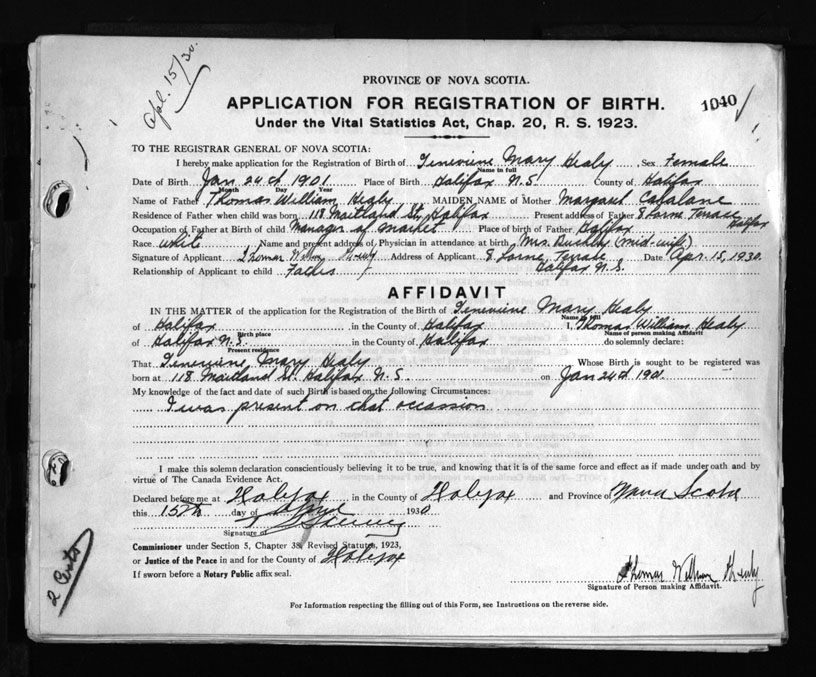 Apl. 15/30.
PROVINCE OF NOVA SCOTIA.
APPLICATION FOR REGISTRATION OF BIRTH. 1040
Under the Vital Statistics Act, Chap. 20, R. S. 1923.
TO THE REGISTRAR GENERAL OF NOVA SCOTIA:
I hereby make application for the Registration of Birth of Genevieve Mary Healy Sex Female
Name in full
Date of Birth Jan 24th 1901 Place of Birth Halifax N.S. County of Halifax
Month Day Year
Name of Father Thomas William Healy MAIDEN NAME of Mother Margaret
Residence of Father when child was born 118 Maitland St, Halifax Present address of Father 8 Lorne Terrace Halifax
Occupation of Father at Birth of child Manager of Market Place of birth of Father Halifax
Race white Name and present address of Physician in attendance at birth Mrs. (mid-wife)
Signature of Applicant Thomas William Healy Address of Applicant 8 Lorne Terrace Date Apr. 15, 1930.
Relationship of Applicant to child Father Halifax N.S.
AFFIDAVIT
IN THE MATTER of the application for the Registration of the Birth of Genevieve Mary Healy
Name in full
of Halifax in the County of Halifax I, Thomas William Healy
Birth place Name of person making Affidavit
of Halifax N.S. in the County of Halifax do solemnly declare:
Present residence
That Genevieve Mary Healy Whose Birth is sought to be registered was
born at 118 Maitland St. Halifax N.S. on Jan 24th 1901.
My knowledge of the fact and date of such Birth is based on the following Circumstances:
I was present on that occassion
I make this solemn declaration conscientiously believing it to be true, and knowing that it is of the same force and effect as if made under oath and by
virtue of The Canada Evidence Act.
Declared before me at Halifax in the County of Halifax and Province of Nova Scotia
this 15th day of April 1930
Signature of
Commissioner under Section 5, Chapter 38, Revised Statutes, 1923,
or Justice of the Peace in and for the County of Halifax
If sworn before a Notary Public affix seal.
Thomas William Healy
Signature of Person making Affidavit.
2 Certs
For Information respecting the filling out of this Form, see Instructions on the reverse side.